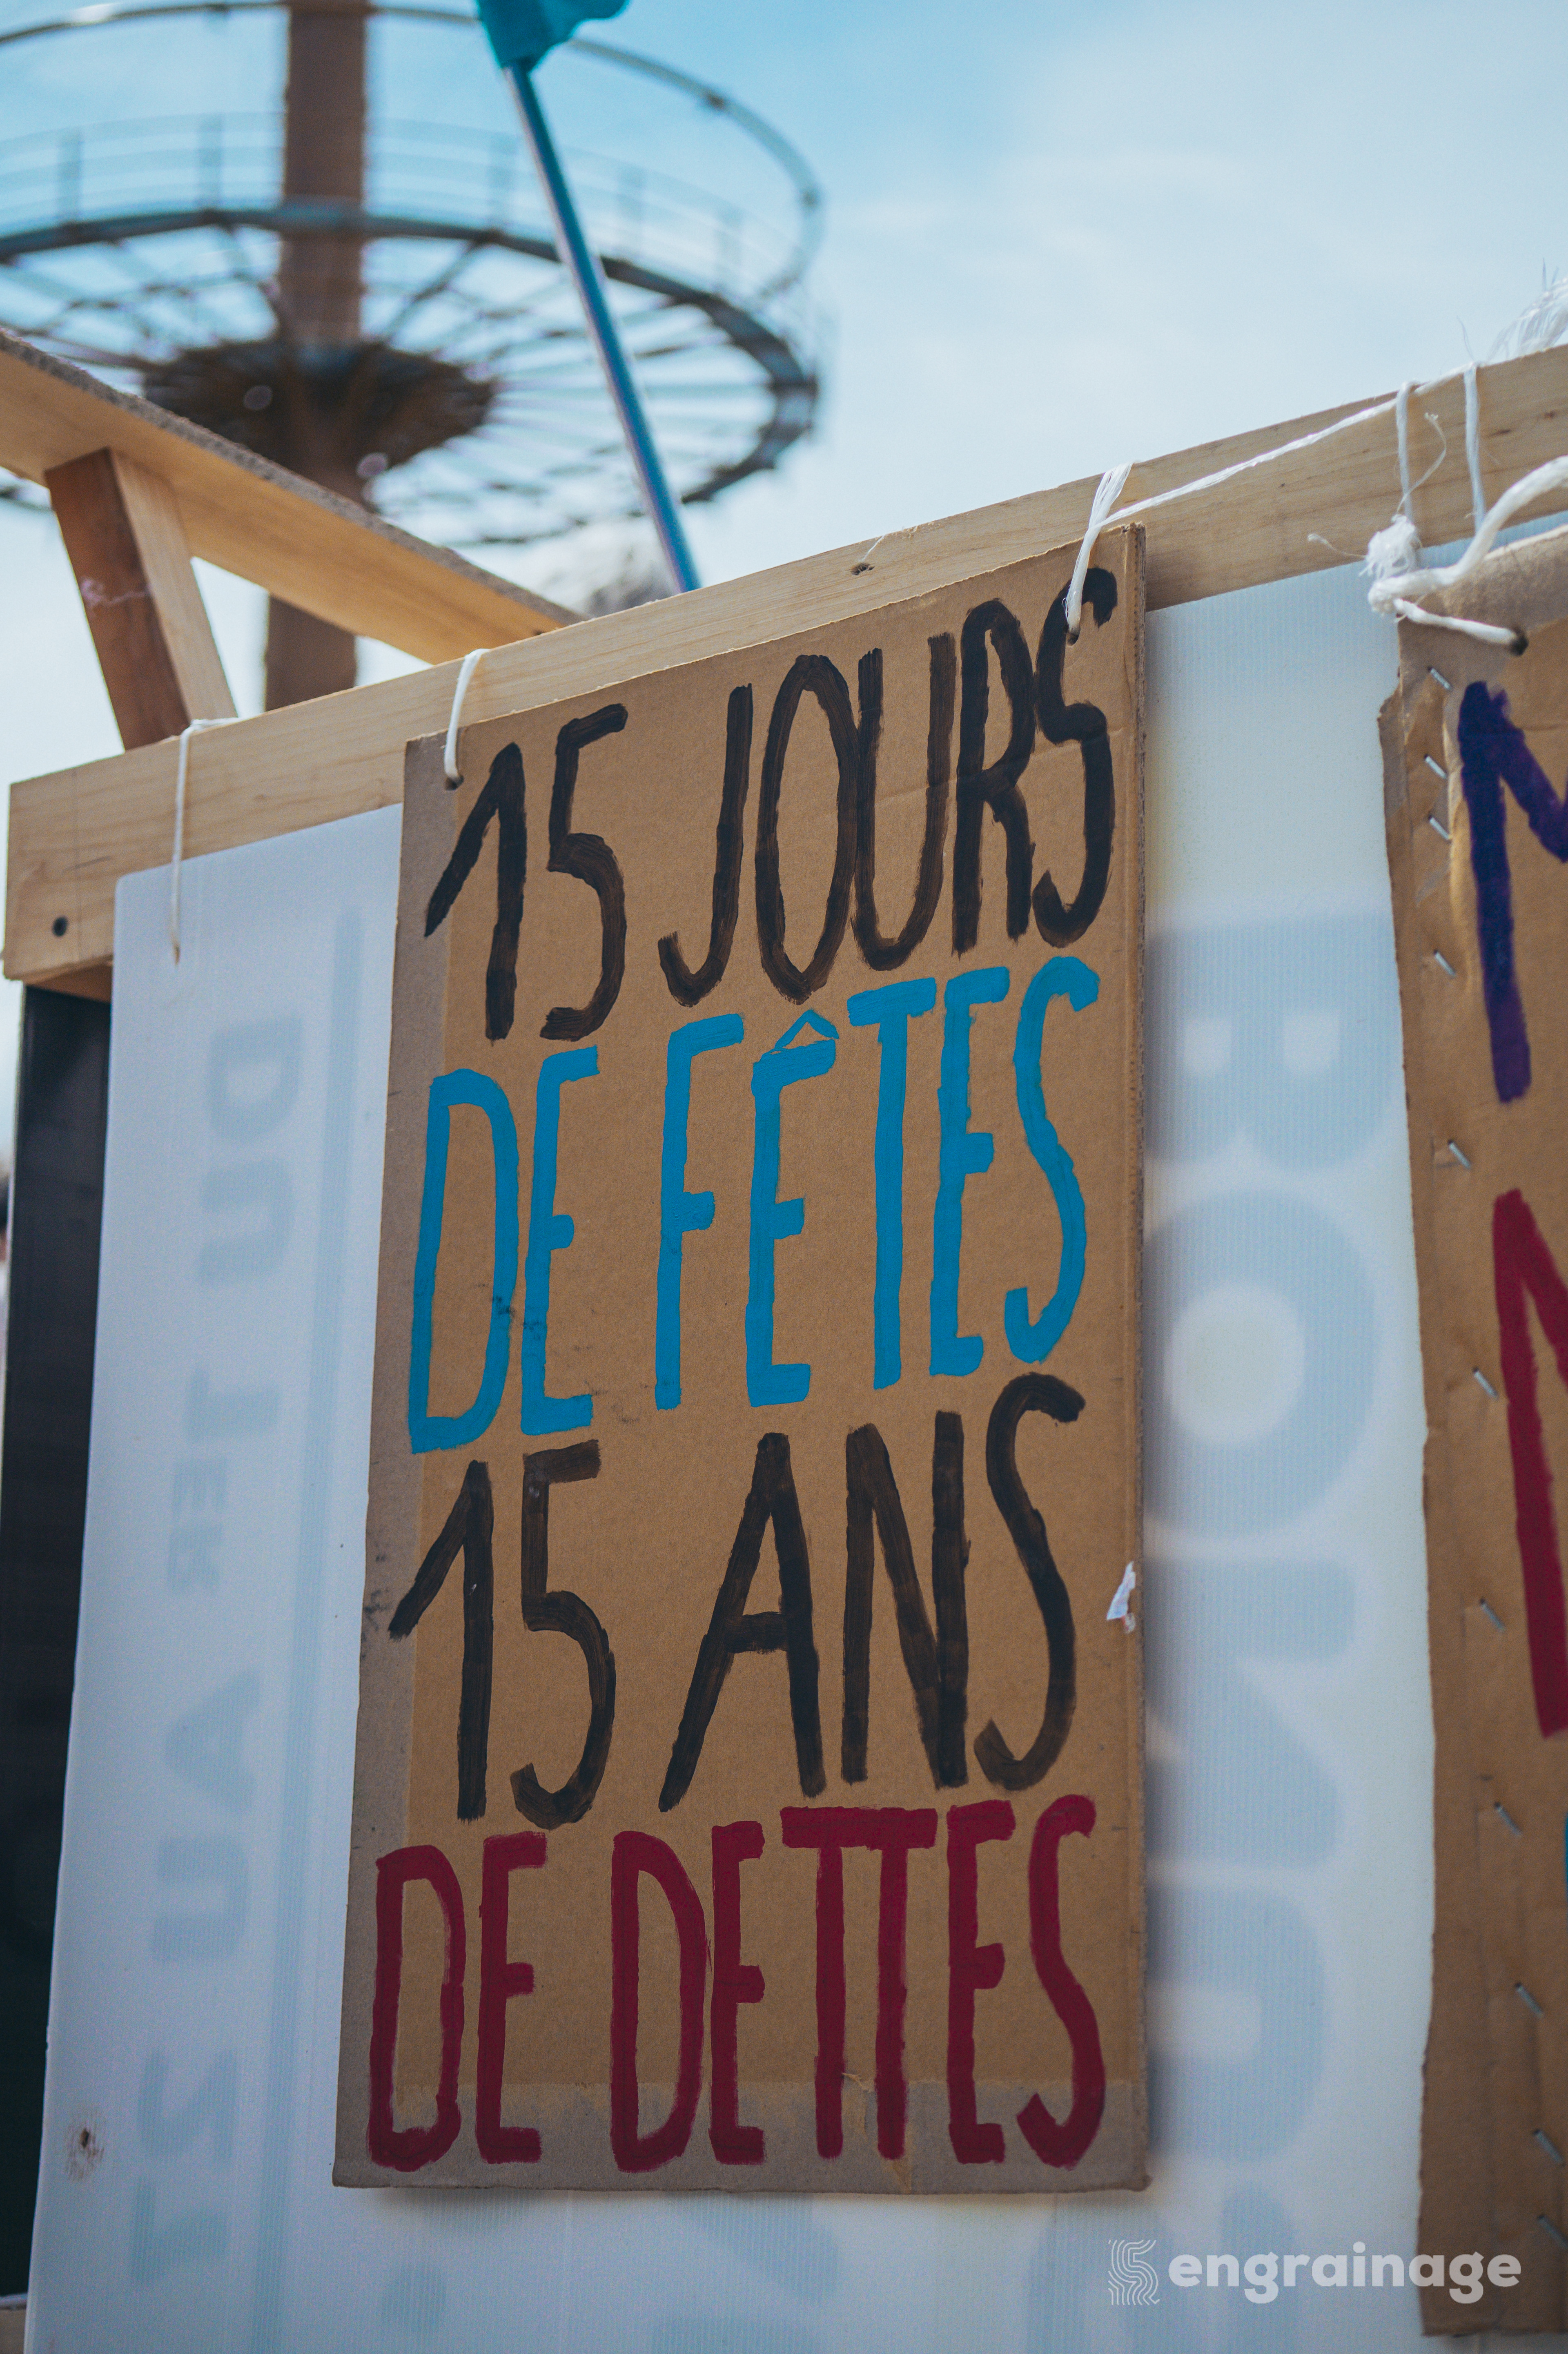 15 JOURS
DE FÊTES
15 ANS
DE DETTES
engrainage